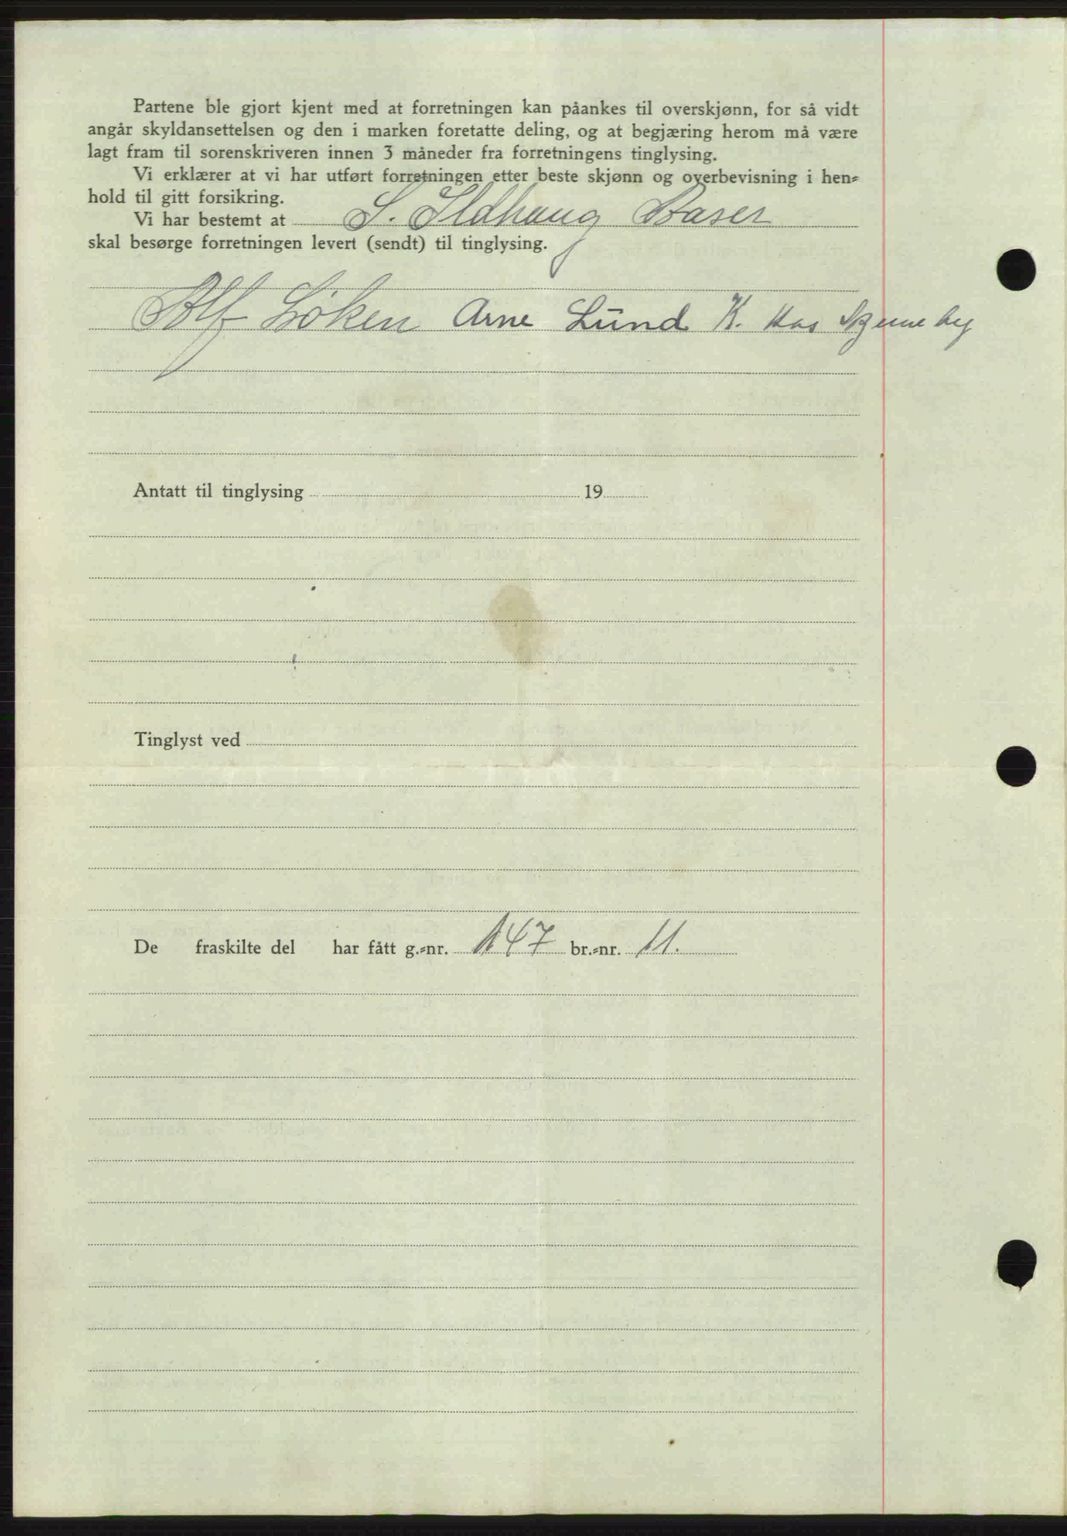 Partene ble gjort kjent med at forretningen kan påankes til overskjønn, for så vidt
angår skyldansettelsen og den i marken foretatte deling, og at begjæring herom må være
lagt fram til sorenskriveren innen 3 måneder fra forretningens tinglysing.
Vi erklærer at vi har utført forretningen etter beste skjønn og overbevisning i hen-
hold til gitt forsikring.
Vi har bestemt at S. Ildhaug
skal besørge forretningen levert (sendt) til tinglysing.
Alf Löken Arne Lund K.
Antatt til tinglysing 19
Tinglyst ved
De fraskilte del har fått g.-nr. 147 br.-nr. 11.